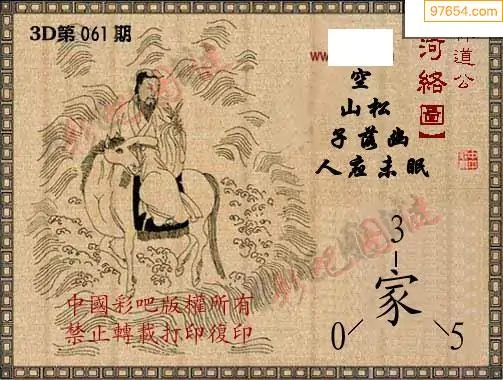 97654.com
3D第 061 期
www.
道公
河络圖】
空
山 松
子 落 幽
人 应 未 眠
3
家
0 5
中國彩吧版權所有
禁止轉載打印復印